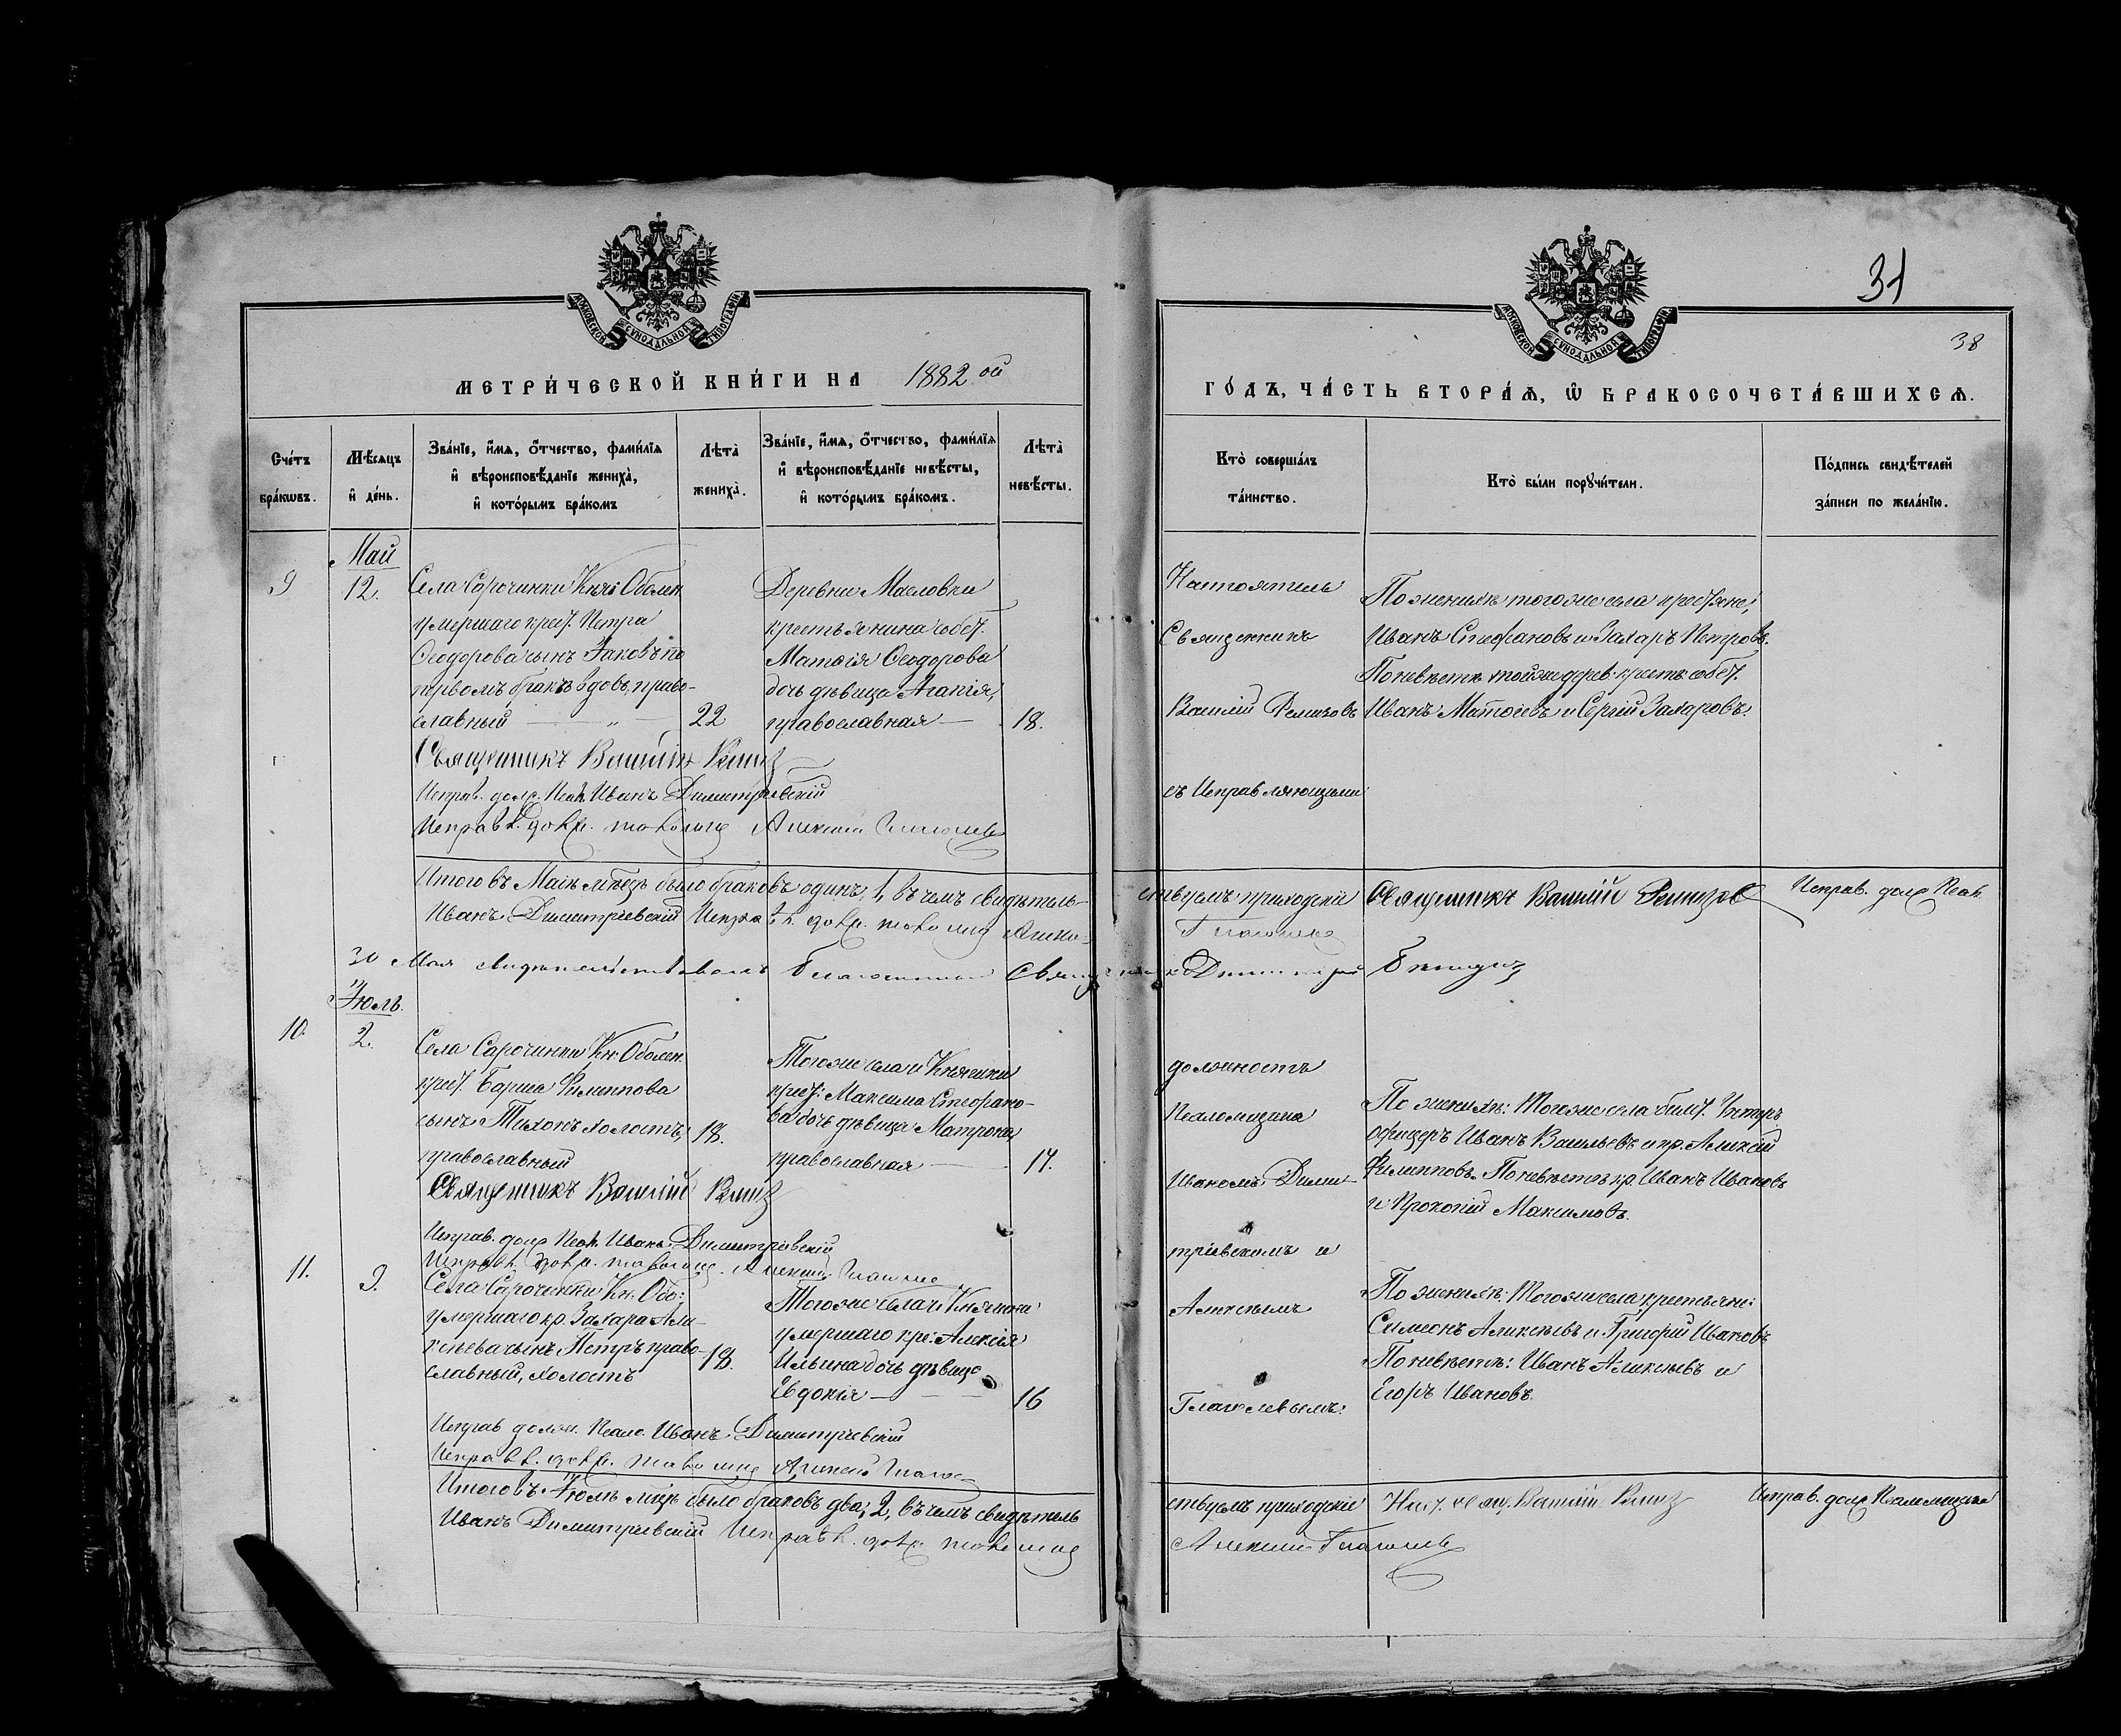 МОСКОВСКОЙ СѴНОДАЛЬНОЙ ТИПОГРАФІИ
МЕТРИ́ЧЕСКОЙ КНИ́ГИ НА 1882 ой
Сче́тъ бра́кωвъ.
Мѣ́сяцъ и҆ де́нь.
Зва́нїе, и҆́мя, ѻ҆́тчество, фами́лїя и҆ вѣроисповѣ́данїе жениха̀, и҆ кото́рымъ бра́комъ
Лѣта̀ жениха̀.
Зва́нїе, и҆́мя, ѻ҆́тчество, фами́лїя и҆ вѣроисповѣ́данїе невѣ́сты, и҆ кото́рымъ бра́комъ.
Лѣта̀ невѣ́сты.
Май
9
12.
Села Сарочинки Княг Оболен
умершаго крест. Петра
Ѳеодорова сынъ Іаковъ по
первомъ бракѣ вдовъ, право-
славный — „ —
22
Деревни Масловки
крестьянина собст.
Матѳія Ѳеодорова
дочь дѣвица Агапія,
православная —
18.
Священникъ Василій
Исправ. долж. Псал. Иванъ Димитріевскій
Исправл. долж. Алексій
Итого въ Маѣ мѣсяцѣ было браковъ одинъ, 1, въ чемъ свидѣтель-
Иванъ Димитріевскій Исправл. долж.
30 Мая свидѣтельствовалъ Благочинный
Іюль.
10.
2.
Села Сарочинки Кн. Оболен.
крест. Бориса Филиппова
сынъ Тихонъ холостъ,
православный
18.
Тогоже села и Княгини
крест: Максима Стефано-
ва дочь дѣвица Матрона,
православная —
17.
Священникъ Василій
Исправ. долж Псал. Иванъ Димитріевскій
Исправл. долж. Алексій
11.
9.
Села Сарочинки Кн. Обо:
умершаго кр. Захара Але-
ксѣева сынъ Петръ право-
славный, холостъ
18.
Тогоже села и Княгини
умершаго кре: Алексія
Ильина дочь дѣвица
Евдокія —
16
Исправ долж. Псало. Иванъ Димитріевскій
Исправл. долж. Алексій
Итого въ Іюлѣ мѣсяцѣ было браковъ два, 2, въ чемъ свидѣтель
Иванъ Димитріевскій Исправл. долж.
31
38
МОСКОВСКОЙ СѴНОДАЛЬНОЙ ТИПОГРАФІИ
ГО́ДЪ, ЧА́СТЬ ВТОРА́Ѧ, Ѽ БРАКОСОЧЕТА́ВШИХСѦ.
Кто̀ соверша́лъ та́инство.
Кто̀ бы́ли порꙋчи́тели.
По́дпись свидѣ́телей за́писи по жела́нїю.
Настоятель
Священникъ
Василій Ремизовъ
съ Исправляющими
По женихѣ тогоже села крестьяне,
Иванъ Стефановъ и Захаръ Петровъ.
По невѣстѣ тойже дерев. крестъ. собст.
Иванъ Матѳіевъ и Сергій Захаровъ.
ствуемъ приходскіе Священникъ Василій Ремизовъ Исправ. долж Псал.
должность
Псаломщика
Иваномъ Дими-
тріевскимъ и
Алексѣемъ
Глаголевымъ:
По женихѣ: Тогоже села билет. Унтеръ
офицеръ Иванъ Васильевъ и кр. Алексій
Филипповъ. По невѣстѣ кр. Иванъ Ивановъ
и Прокопій Максимовъ.
По женихѣ: Тогоже села крестьяне:
Симеонъ Алексѣевъ и Григорій Ивановъ
По невѣстѣ: Иванъ Алексѣевъ и
Егоръ Ивановъ.
ствуемъ приходскіе Наст. свящ. Василій Исправ. долж Псаломщика
Алексій Глаголевъ